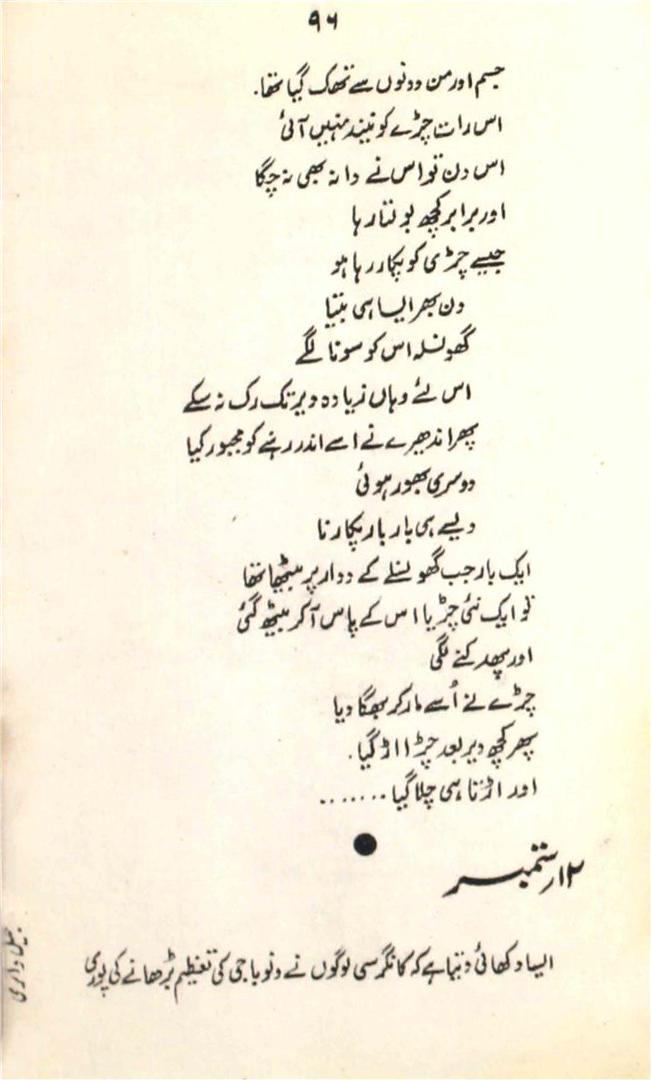 ۹۶
جسم اور من دونوں سے تھک گیا تھا۔
اس رات چڑے کو نیند نہیں آئی
اس دن تو اس نے دانہ بھی نہ چگا
اور برابر کچھ بولتا رہا
جیسے چڑی کو پکار رہا ہو
دن بھر ایسا ہی بیتا
گھونسلہ اس کو سونا لگے
اس لئے وہاں زیادہ دیر تک رک نہ سکے
پھر اندھیرے نے اسے اندر رہنے کو مجبور کیا
دوسری بھور ہوئی
ویسے ہی بار بار پکارنا
ایک بار جب گھونسلے کے دوار پر بیٹھا تھا
تو ایک نئی چڑیا اس کے پاس آکر بیٹھ گئی
اور پھدکنے لگی
چڑے نے اُسے مار کر بھگا دیا
پھر کچھ دیر بعد چڑا اڑ گیا۔
اور اڑتا ہی چلا گیا .......
۱۲ ستمبر
ایسا دکھائی دیتا ہے کہ کانگرسی لوگوں نے ونوباجی کی تعظیم بڑھانے کی پوری
جیل ڈائری